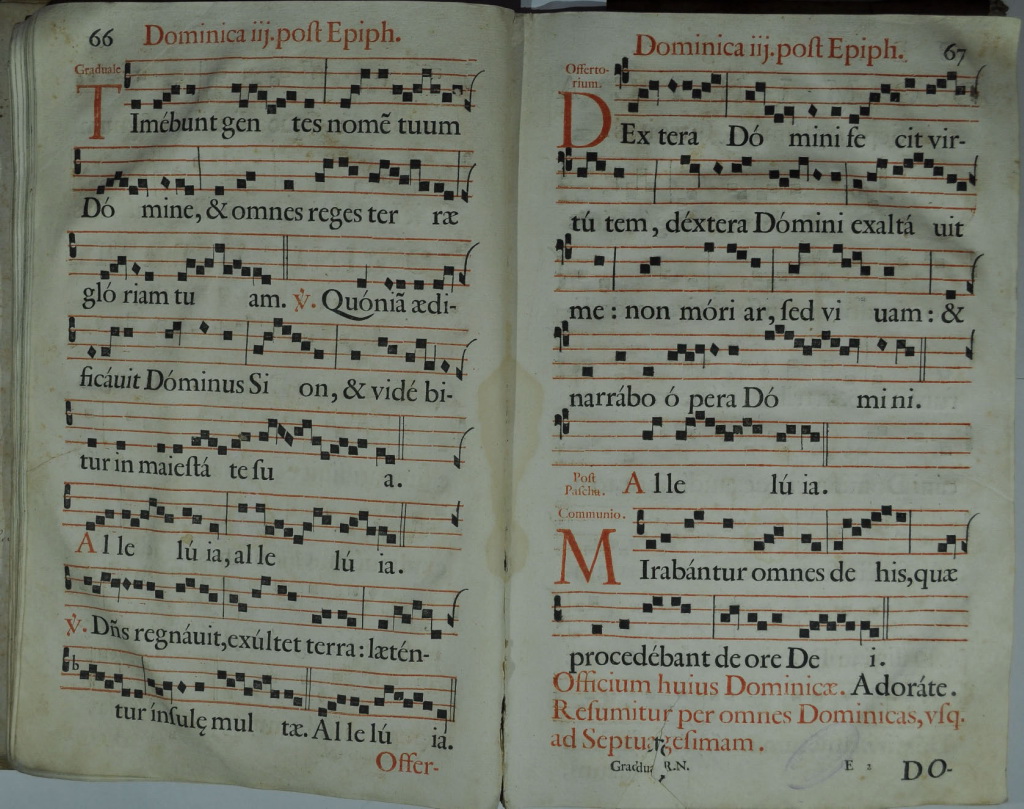 66 Dominica iij. poſt Epiph.
Graduale
TImébunt gen tes nomẽ tuum
Dó mine, & omnes reges ter ræ
gló riam tu am. ℣. Quóniã ædi-
ficáuit Dóminus Si on, & vidé bi-
tur in maieſtá te ſu a.
Al le lú ia, al le lú ia.
℣. Dñs regnáuit, exúltet terra: lætén-
tur ínſulę mul tæ. Al le lú ia.
Offer-
Dominica iij. poſt Epiph. 67
Offerto-
rium.
DEx tera Dó mini fe cit vir-
tú tem, déxtera Dómini exaltá uit
me: non móri ar, ſed vi uam: &
narrábo ó pera Dó mi ni.
Poſt
Paſcha. Al le lú ia.
Communio.
MIrabántur omnes de his, quæ
procedébant de ore De i.
Officium huius Dominicæ. Adoráte.
Reſumitur per omnes Dominicas, vſq.
ad Septuageſimam.
R.N. E 2 DO-